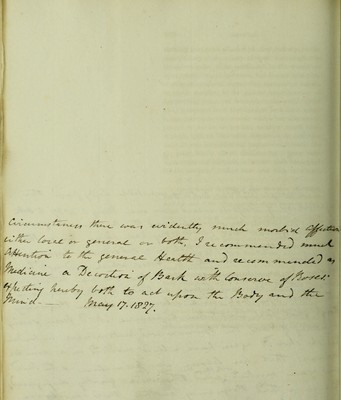 Circumstances there was evidently much morbid affection
either local or general or both. I recommended much
attention to the general Health and recommended as
Medicine a Decoction of Bark with Conserve of Roses
expecting hereby both to act upon the Body and the
Mind — May 17. 1827.